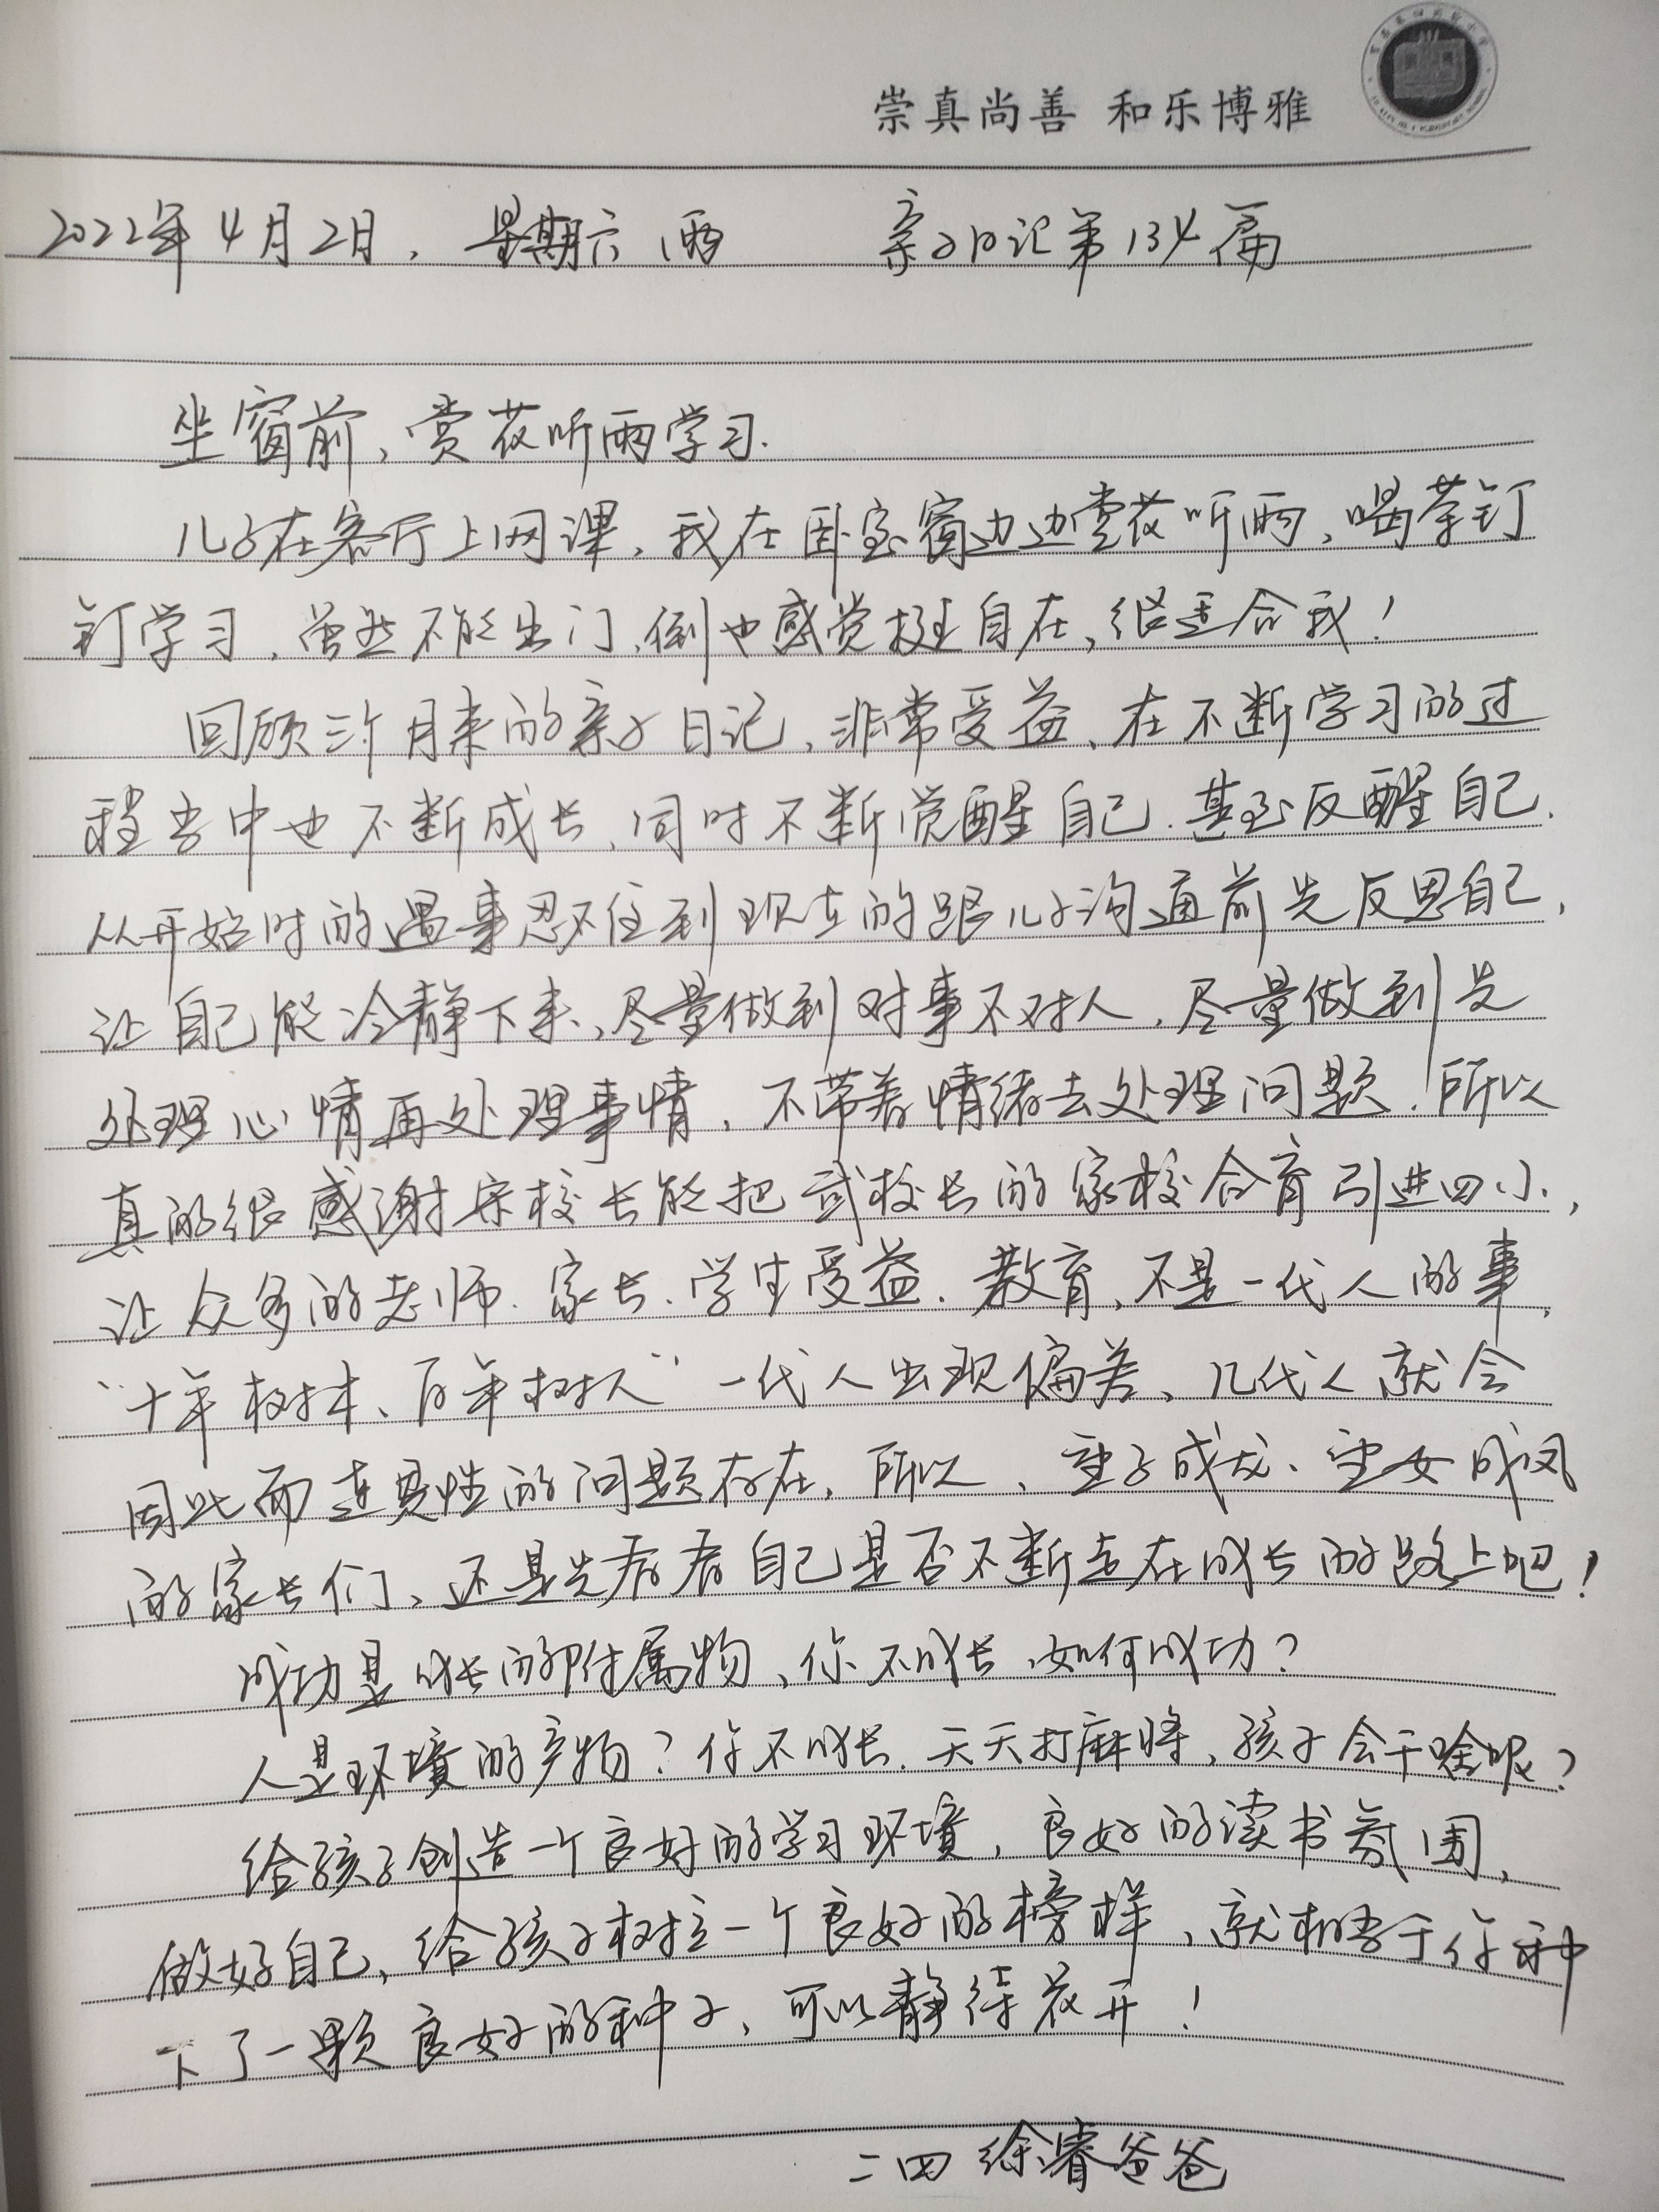 崇真尚善 和乐博雅
2022年4月2日, 星期六 雨 亲子日记第134篇
坐窗前,赏花听雨学习.
儿子在客厅上网课,我在卧室窗边边赏花听雨,喝茶钉
钉学习,虽然不能出门,倒也感觉挺自在,很适合我!
回顾三个月来的亲子日记,非常受益、在不断学习的过
程当中也不断成长,同时不断觉醒自己.甚至反醒自己.
从开始时的遇事忍不住到现在的跟儿子沟通前先反思自己,
让自己能冷静下来,尽量做到对事不对人,尽量做到先
处理心情再处理事情,不带着情绪去处理问题!所以
真的很感谢宋校长能把武校长的家校合育引进四小,
让众多的老师.家长.学生受益.教育,不是一代人的事,
“十年树木、百年树人”一代人出现偏差、几代人就会
因此而连贯性的问题存在,所以、望子成龙、望女成凤
的家长们、还是先看看自己是否不断走在成长的路上吧!
成功是成长的附属物、你不成长、如何成功?
人是环境的产物?你不成长.天天打麻将,孩子会干啥呢?
给孩子创造一个良好的学习环境,良好的读书氛围,
做好自己,给孩子树立一个良好的榜样,就相当于你种
下了一颗良好的种子,可以静待花开!
二四 徐睿爸爸